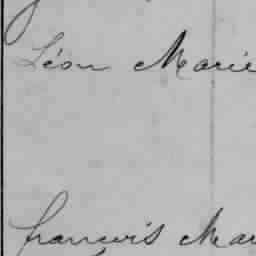 Léon Marie
francois Mar